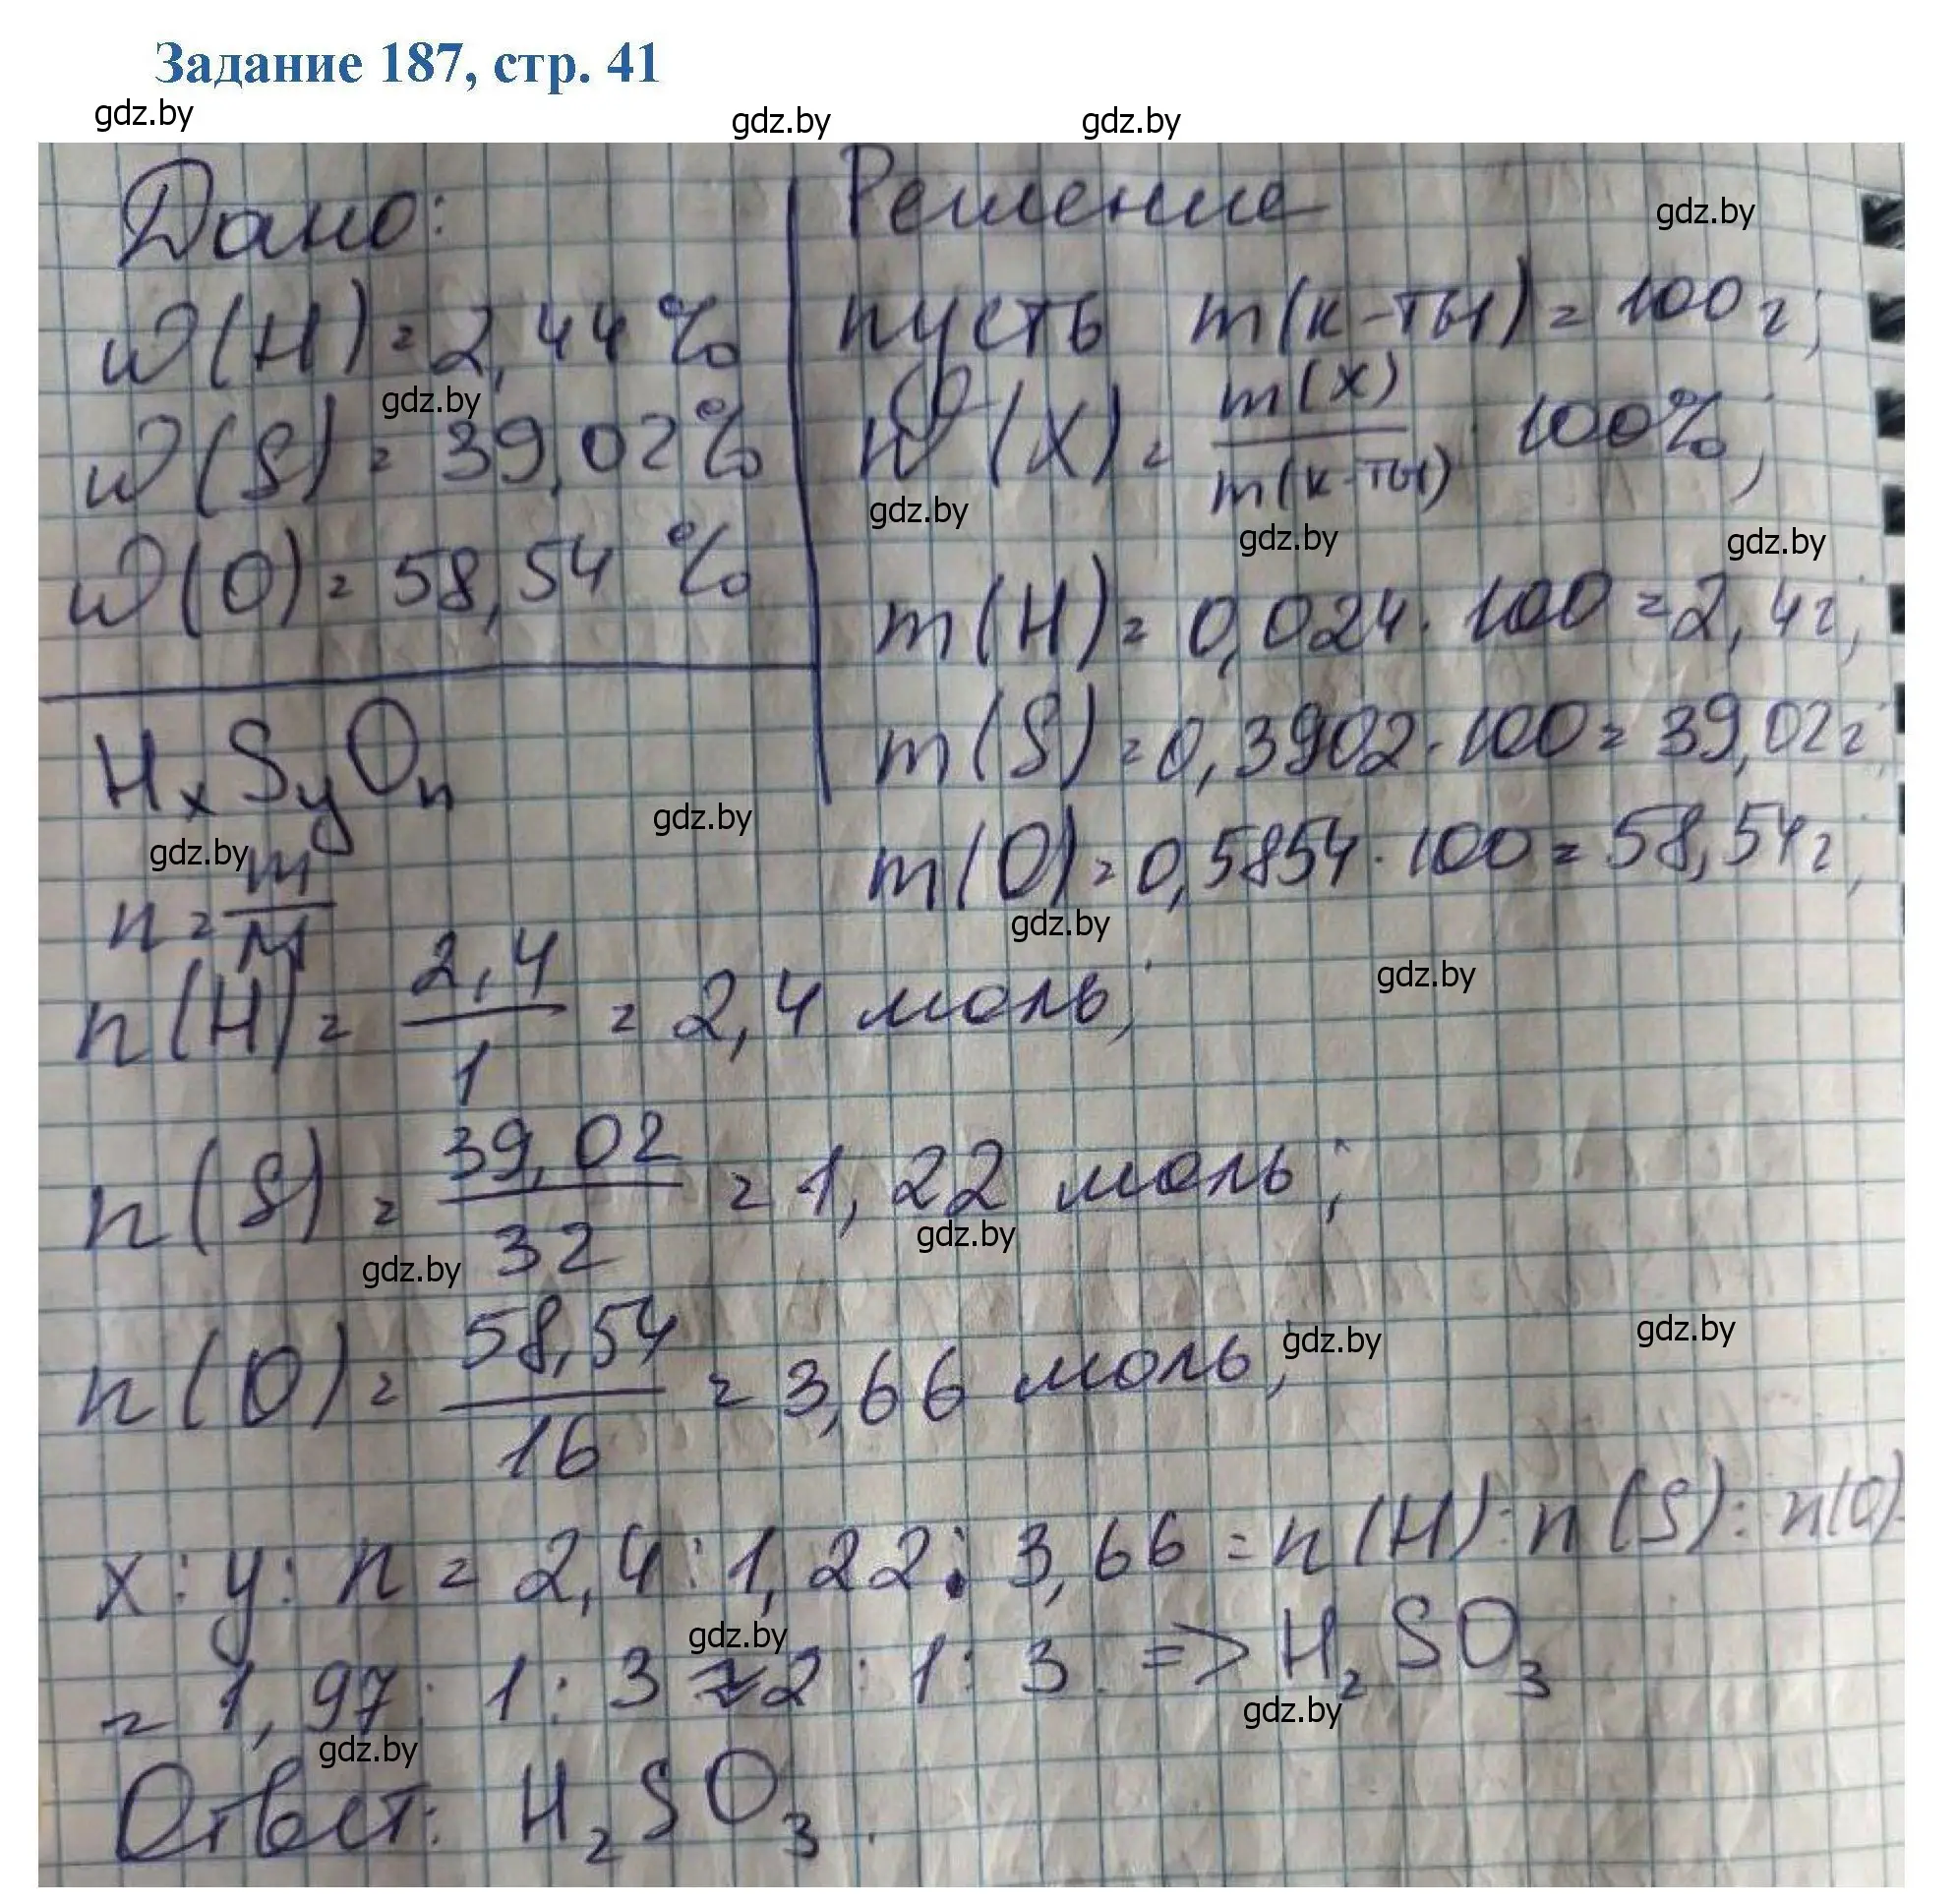 Задание 187, стр. 41
gdz.by gdz.by gdz.by
Дано:
w(H) = 2,44 %
gdz.by
w(S) = 39,02 %
w(O) = 58,54 %
HxSyOn
gdz.by
Решение
gdz.by
пусть m(к-ты) = 100 г;
w(X) = m(x)/m(к-ты) · 100%;
gdz.by gdz.by gdz.by
m(H) = 0,024 · 100 = 2,4 г;
m(S) = 0,3902 · 100 = 39,02 г;
m(O) = 0,5854 · 100 = 58,54 г;
gdz.by
gdz.by
n = m/M
gdz.by
n(H) = 2,4/1 = 2,4 моль;
n(S) = 39,02/32 = 1,22 моль;
gdz.by
gdz.by
n(O) = 58,54/16 = 3,66 моль;
gdz.by gdz.by
x : y : n = 2,4 : 1,22 : 3,66 = n(H) : n(S) : n(O)
gdz.by
= 1,97 : 1 : 3 ≈ 2 : 1 : 3 => H₂SO₃
gdz.by
gdz.by
Ответ: H₂SO₃.